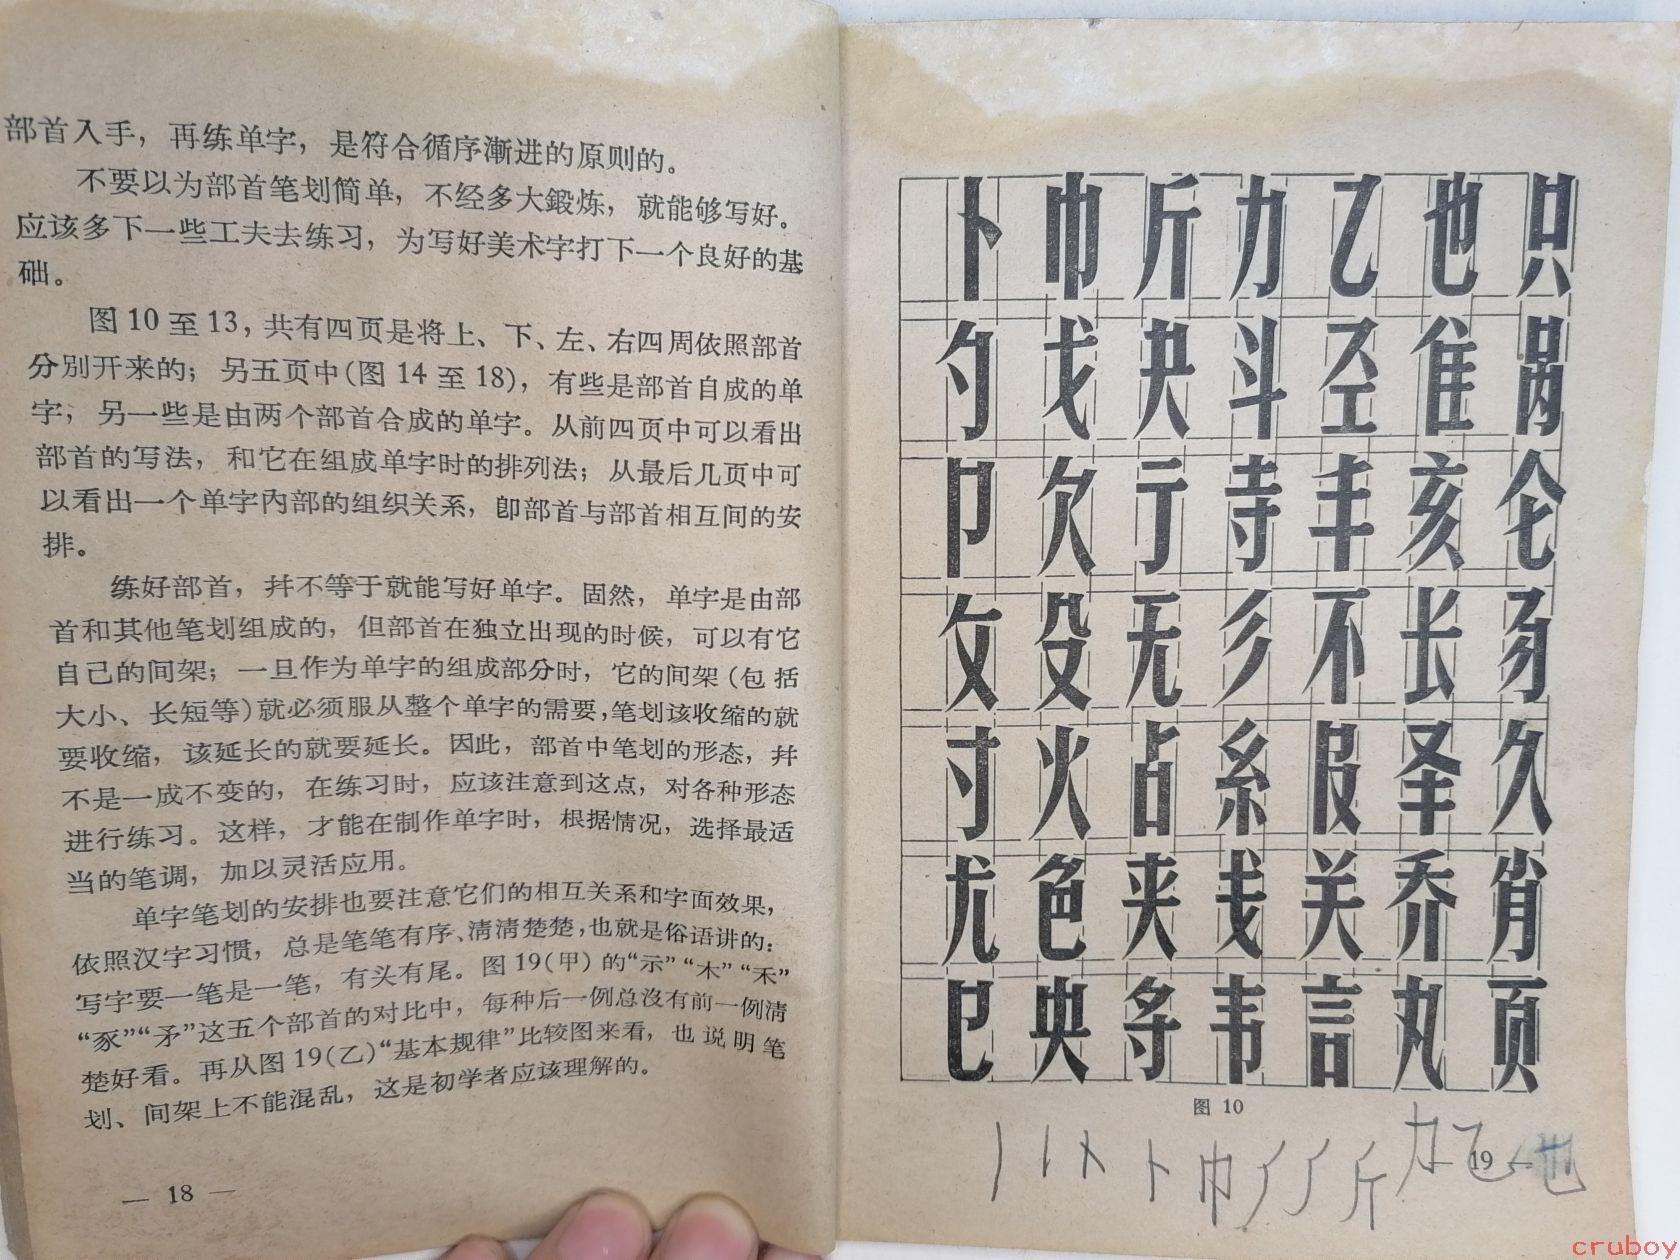 部首入手，再练单字，是符合循序漸进的原则的。
不要以为部首笔划简单，不经多大鍛炼，就能够写好。
应该多下一些工夫去练习，为写好美术字打下一个良好的基
础。
图10至13，共有四页是将上、下、左、右四周依照部首
分别开来的；另五页中(图14至18)，有些是部首自成的单
字；另一些是由两个部首合成的单字。从前四页中可以看出
部首的写法，和它在组成单字时的排列法；从最后几页中可
以看出一个单字内部的组织关系，卽部首与部首相互间的安
排。
练好部首，幷不等于就能写好单字。固然，单字是由部
首和其他笔划组成的，但部首在独立出现的时候，可以有它
自己的间架；一旦作为单字的组成部分时，它的间架(包括
大小、长短等)就必须服从整个单字的需要，笔划该收缩的就
要收缩，该延长的就要延长。因此，部首中笔划的形态，幷
不是一成不变的，在练习时，应该注意到这点，对各种形态
进行练习。这样，才能在制作单字时，根据情况，选择最适
当的笔调，加以灵活应用。
单字笔划的安排也要注意它们的相互关系和字面效果，
依照汉字习惯，总是笔笔有序、清清楚楚，也就是俗语讲的：
写字要一笔是一笔，有头有尾。图19(甲)的“示”“木”“禾”
“豕”“矛”这五个部首的对比中，每种后一例总沒有前一例清
楚好看。再从图19(乙)“基本规律”比较图来看，也说明笔
划、间架上不能混乱，这是初学者应该理解的。
— 18 —
卜巾斤力乙也只
勺戈夬斗圣隹呙
卩欠亍寺丰亥仑
攵殳无彡不长豸
寸火占糸𠬝𠬤久
尤色夹戋关乔肖
巳央寽韦言丸页
图 10
卜 巾 斤 力 乙 也
— 19 —
cruboy